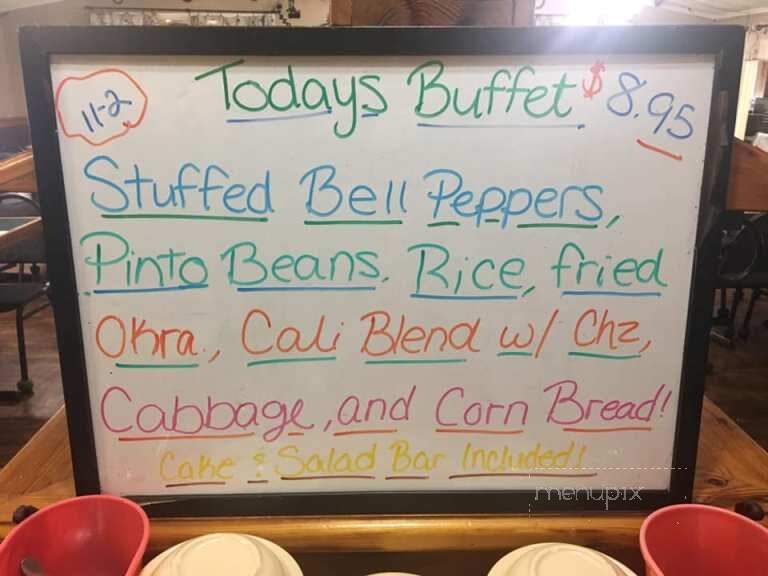 11-2
Todays Buffet $8.95
Stuffed Bell Peppers,
Pinto Beans, Rice, fried
Okra, Cali Blend w/ Chz,
Cabbage, and Corn Bread!
Cake & Salad Bar Included!
menupix